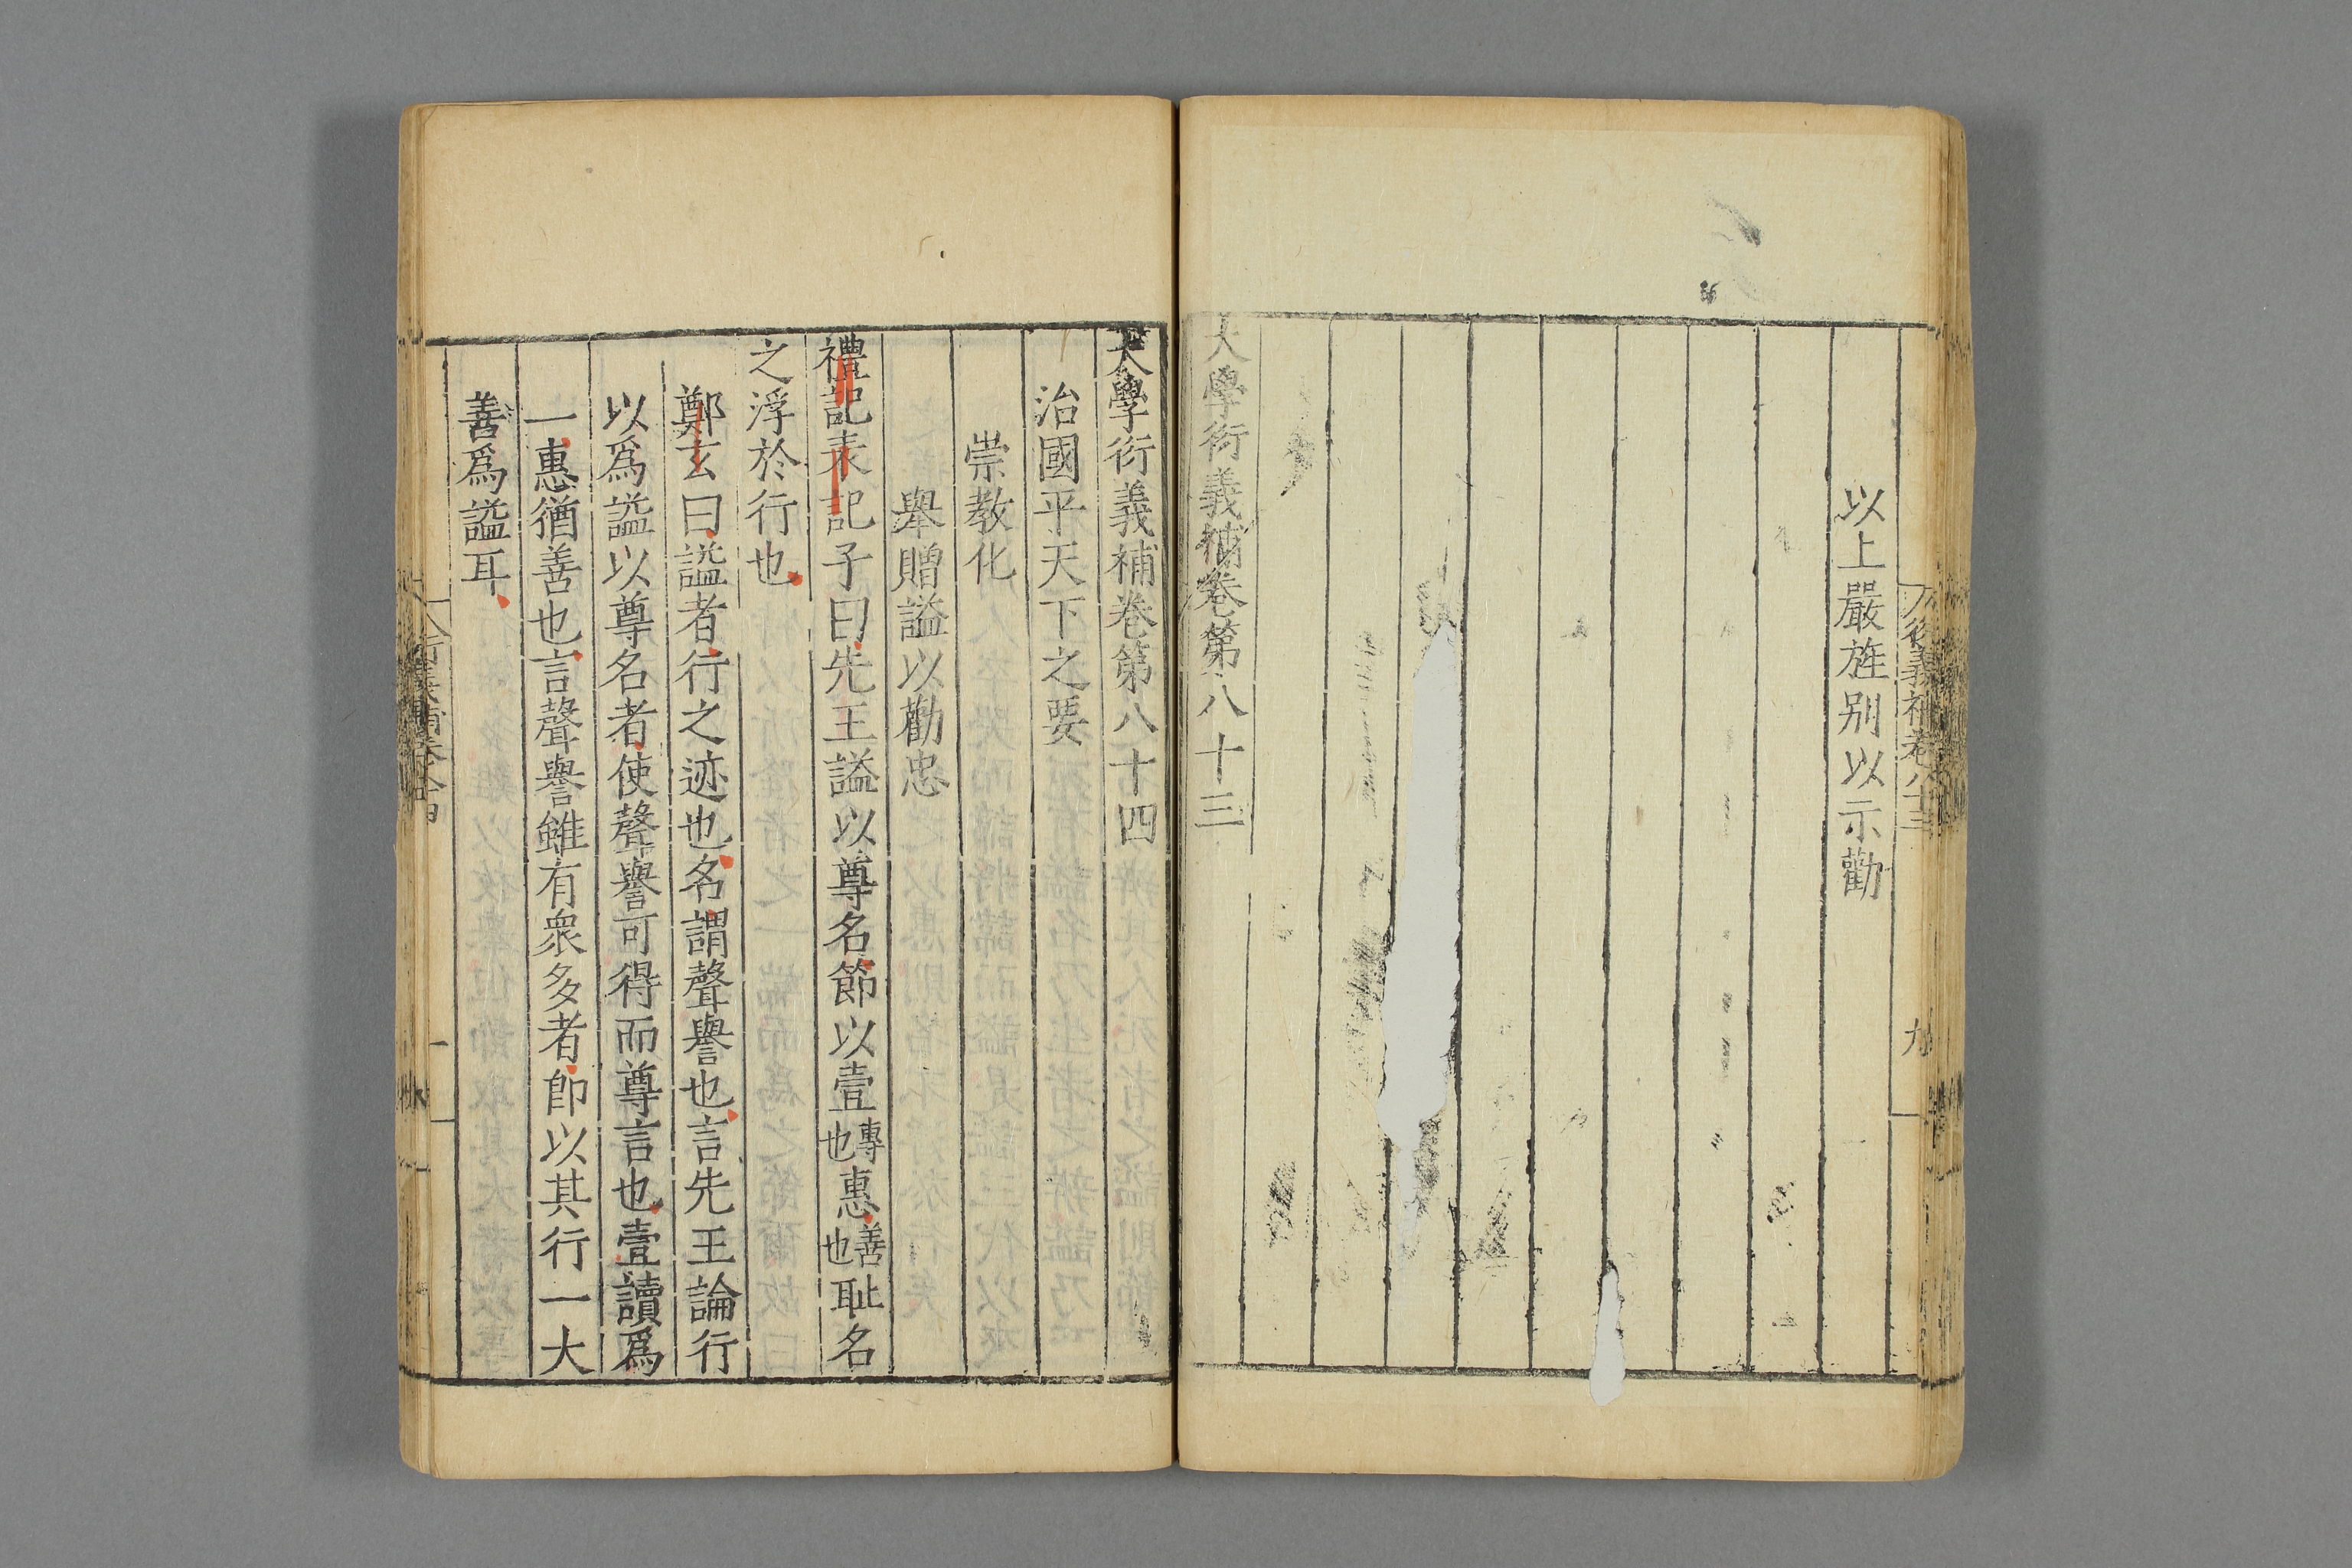 衍義補卷八十三
九
以上嚴旌别以示勸
大學衍義補卷第八十三
大學衍義補卷第八十四
治國平天下之要
崇教化
舉贈謚以勸忠
禮記表記子曰先王謚以尊名節以壹專也惠善也耻名
之浮於行也
鄭玄曰謚者行之迹也名謂聲譽也言先王論行
以爲謚以尊名者使聲譽可得而尊言也壹讀爲
一惠猶善也言聲譽雖有衆多者即以其行一大
善爲謚耳
衍義補卷八十四
一